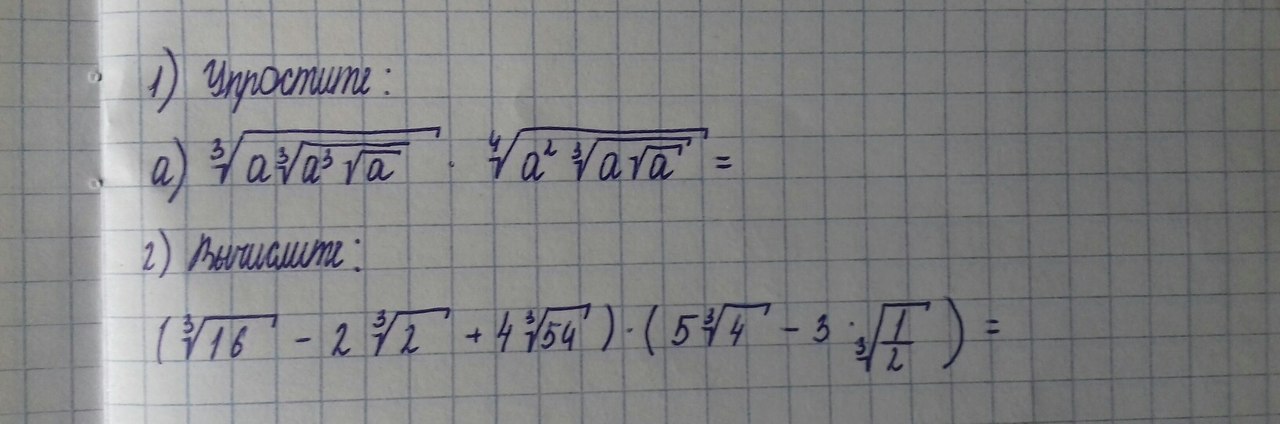 1) Упростите:
а) ∛(a∛(a³√a)) · ∜(a²∛(a√a)) =
2) Вычислите:
(∛16 - 2∛2 + 4∛54) · (5∛4 - 3 · ∛(1/2)) =